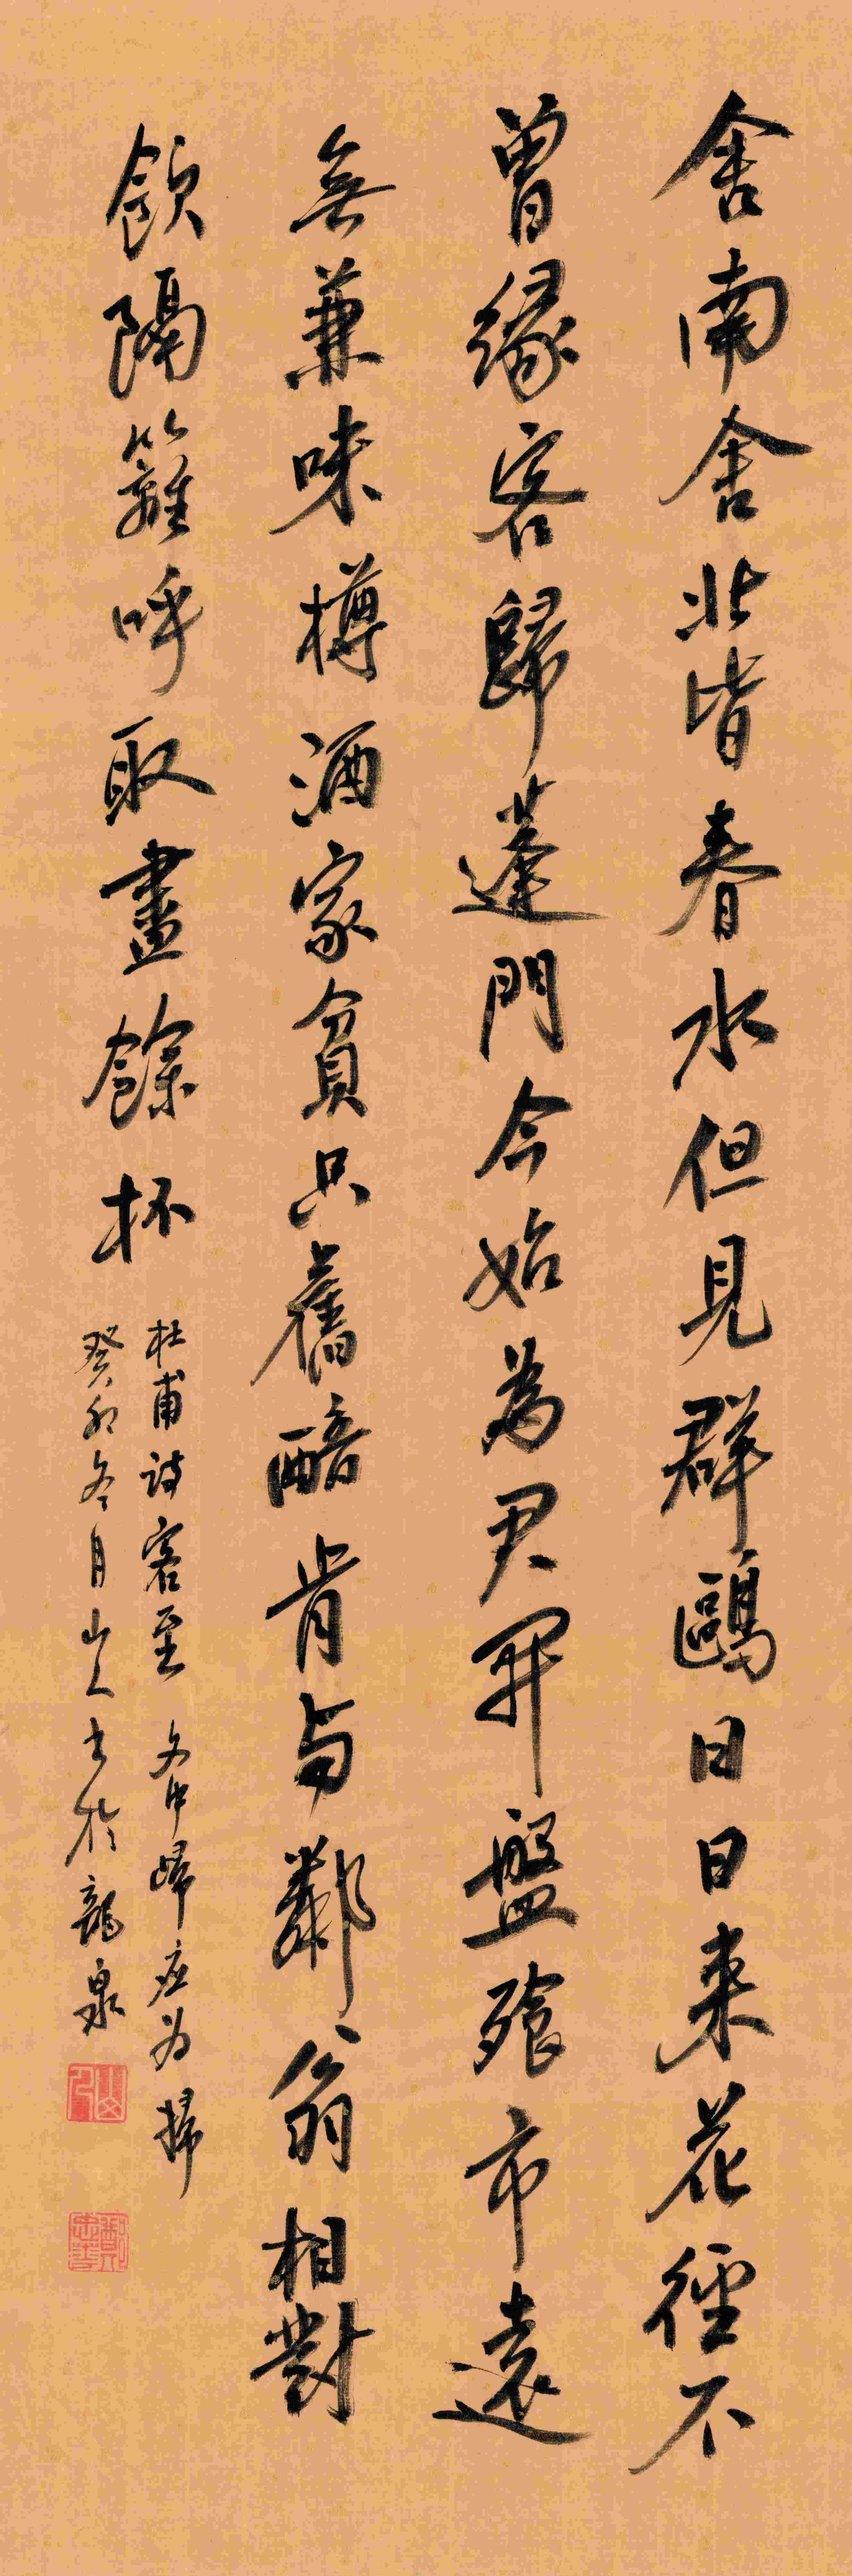 舍南舍北皆春水但見群鷗日日來花徑不
曾緣客歸蓬門今始為君開盤飧市遠
無兼味樽酒家貧只舊醅肯與鄰翁相對
飲隔籬呼取盡餘杯
杜甫詩客至 文中歸應為掃
癸卯冬月山人書於龍泉